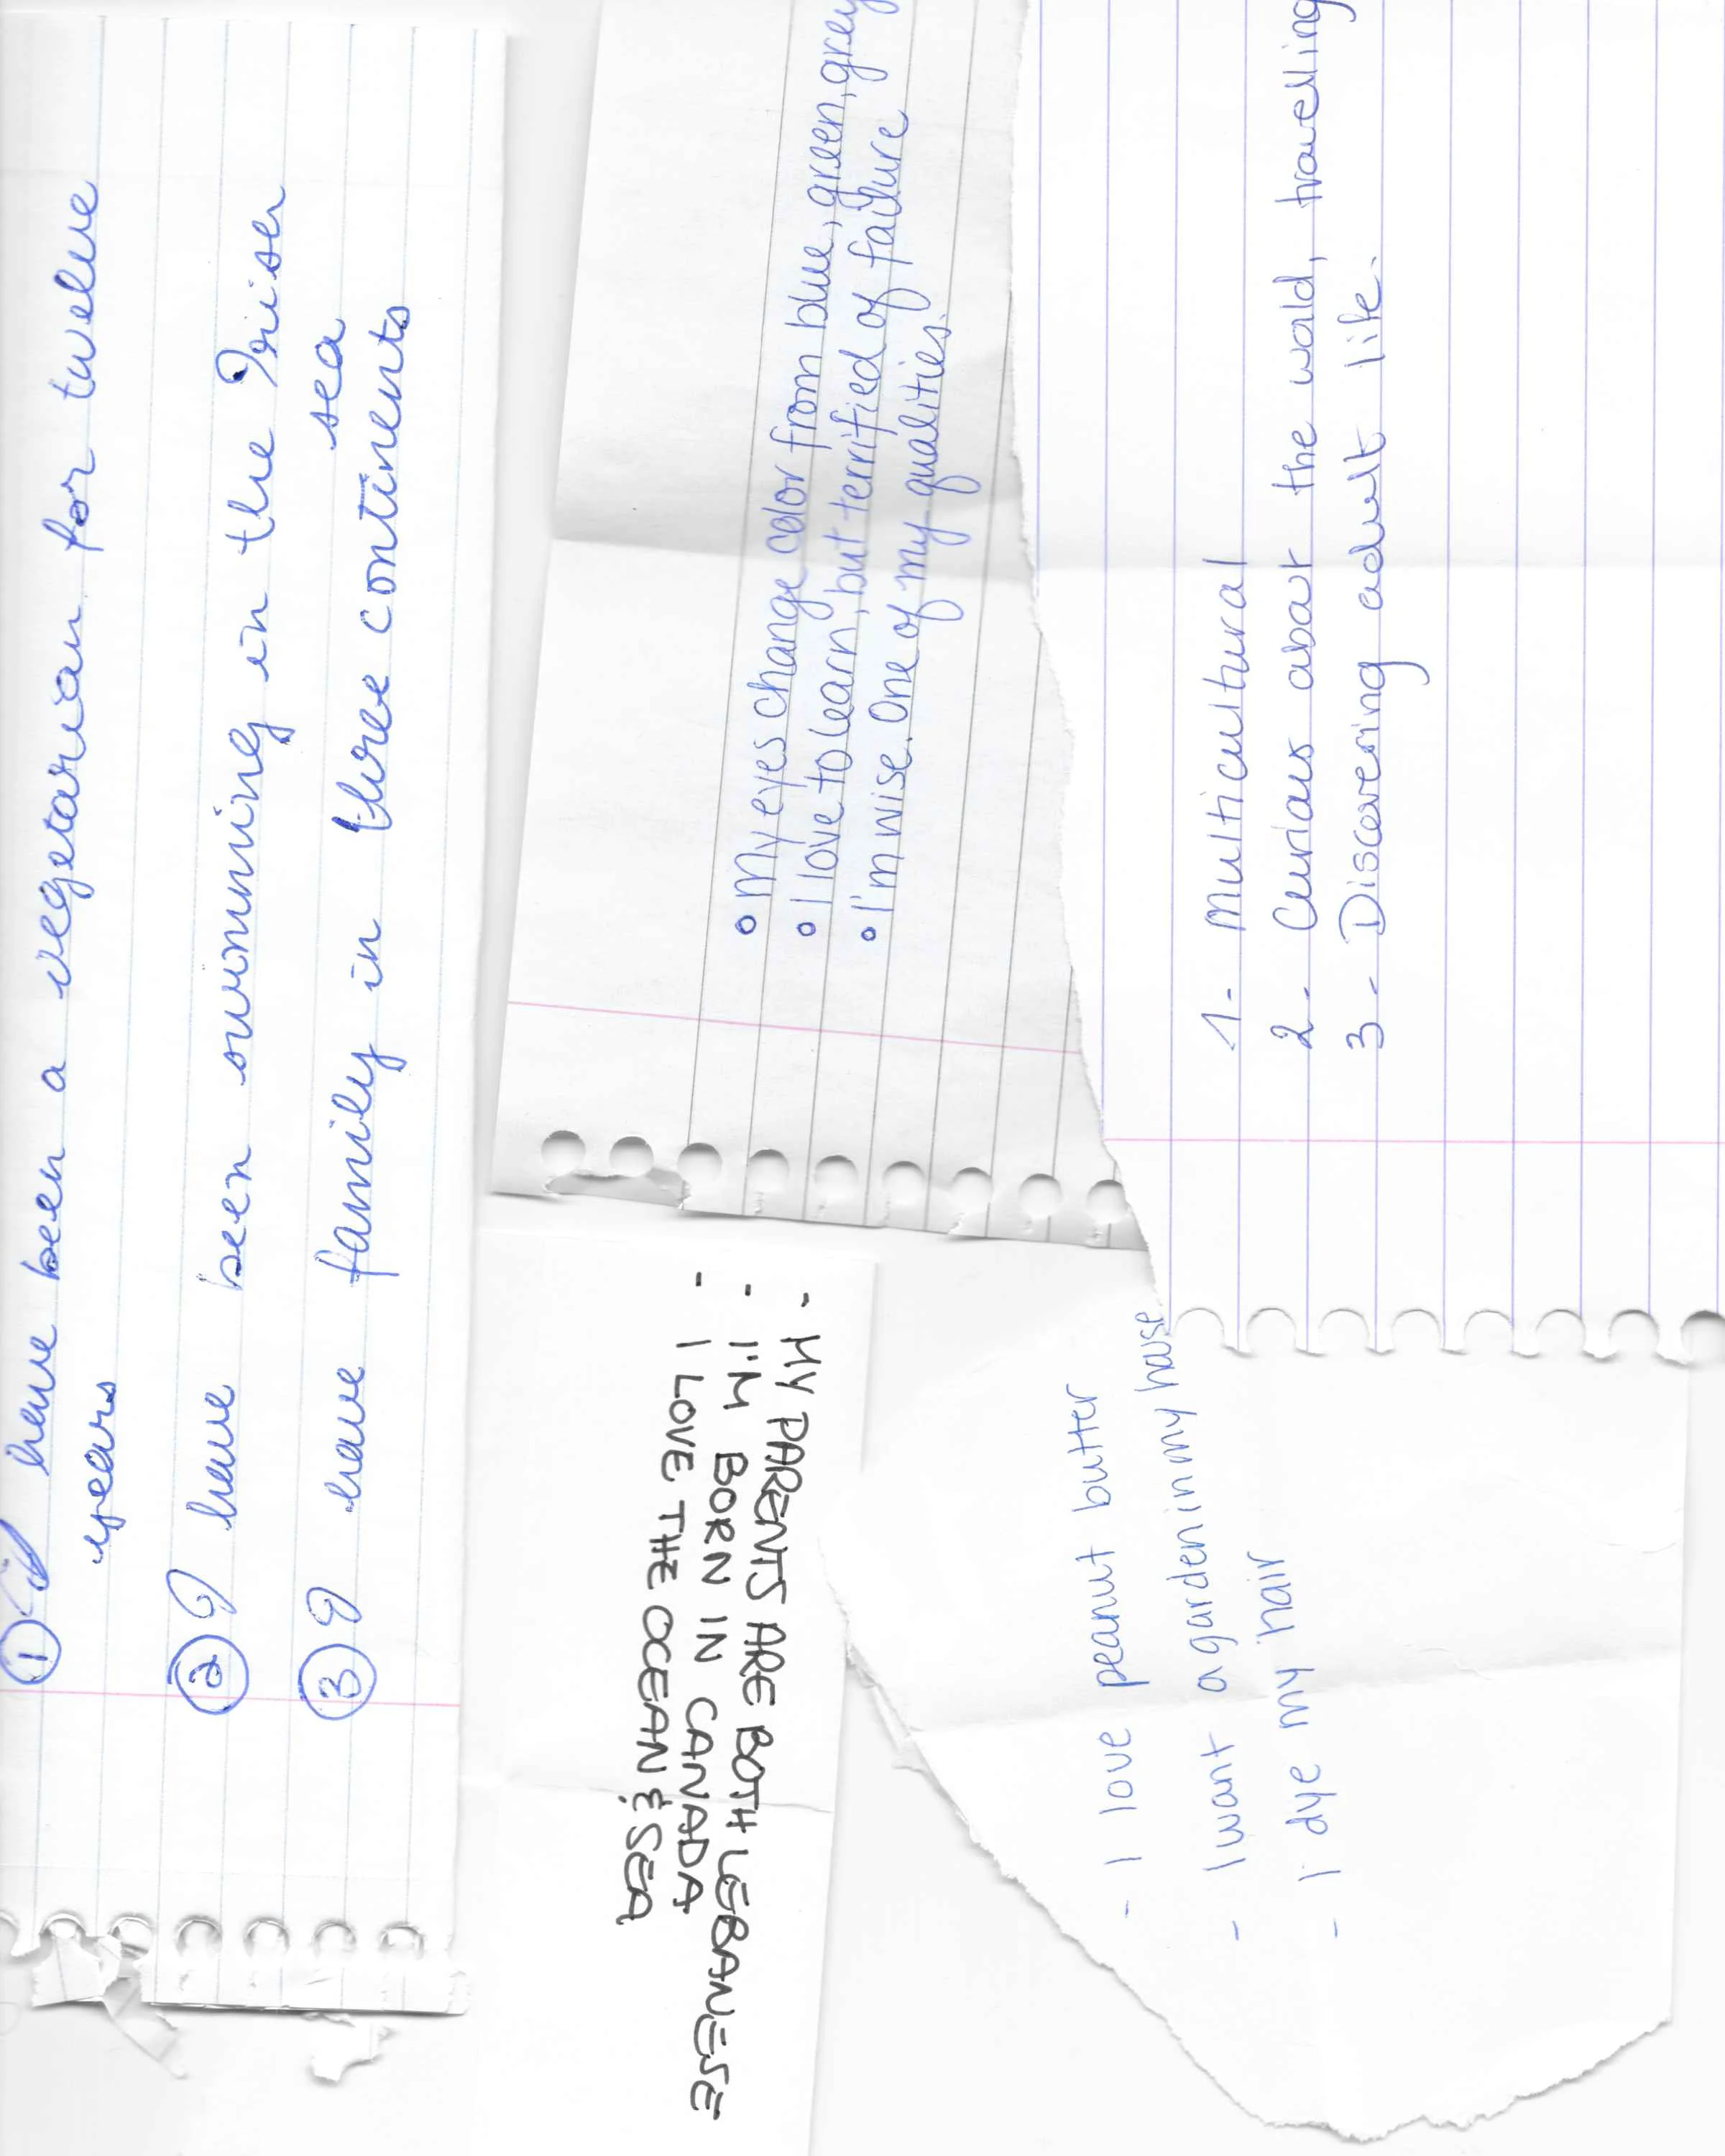 ① I have been a vegetarian for twelve
years
② I have been swimming in the
sea
③ I have family in three continents
• My eyes change color from blue, green, grey
• I love to learn, but terrified of failure
• I'm wise. One of my qualities.
1- Multicultural
2- Curious about the world, travelling
3- Discovering adult life.
- MY PARENTS ARE BOTH LEBANESE
- I'M BORN IN CANADA
- I LOVE THE OCEAN & SEA
- I love peanut butter
- I want a garden in my house
- I dye my hair